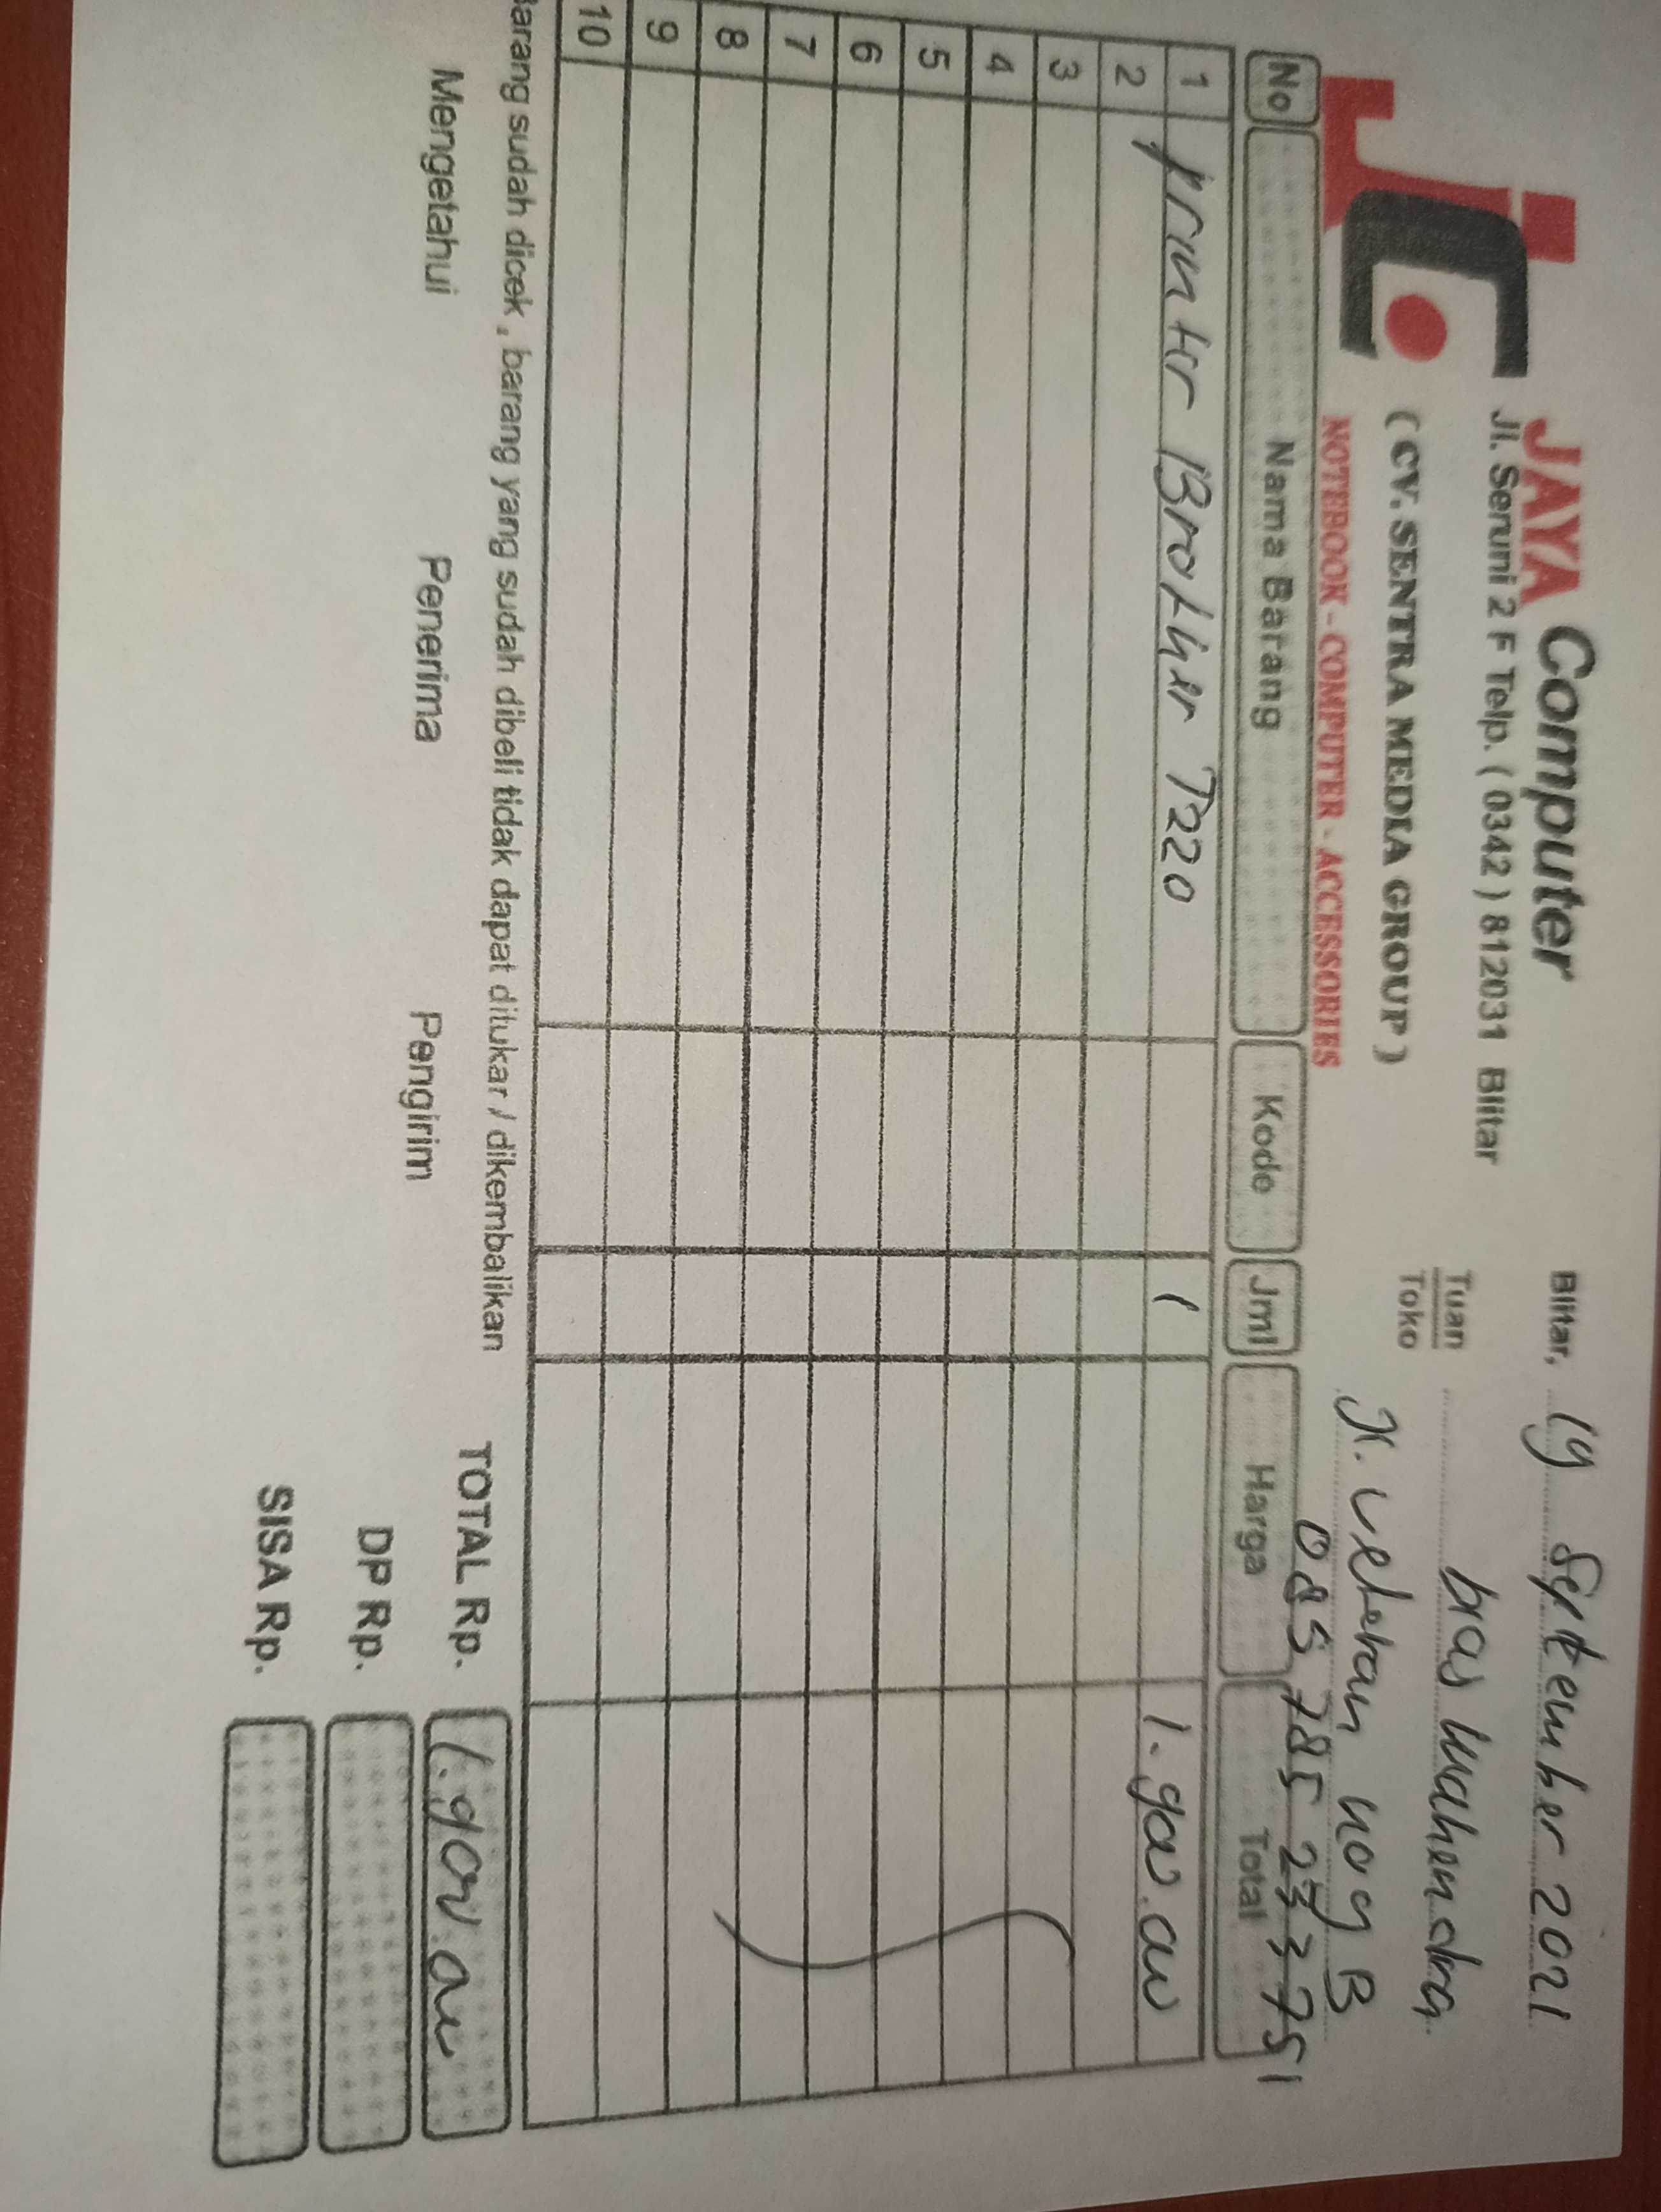 JC
JAYA Computer
Jl. Seruni 2 F Telp. ( 0342 ) 812031 Blitar
( CV. SENTRA MEDIA GROUP )
NOTEBOOK - COMPUTER - ACCESSORIES
Blitar, 19 September 2021
Tuan
Toko
Mahendra
Jl. veteran no 9 B
085 785 233 751
No Nama Barang Kode Jml Harga Total
1 printer Brother T220 1 1.900.000
2
3
4
5
6
7
8
9
10
Barang sudah dicek , barang yang sudah dibeli tidak dapat ditukar / dikembalikan
Mengetahui Penerima Pengirim
TOTAL Rp. 1.900.000
DP Rp.
SISA Rp.